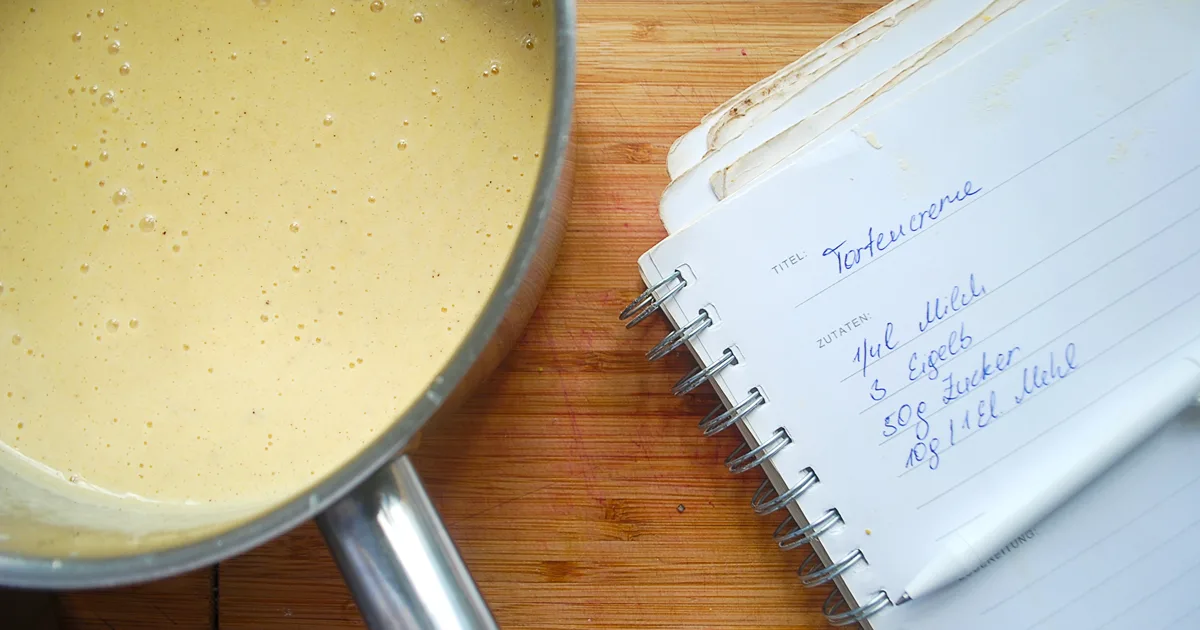 TITEL: Tortencreme
ZUTATEN:
1/4l Milch
3 Eigelb
50g Zucker
10g / 1 El. Mehl
ZUBEREITUNG: